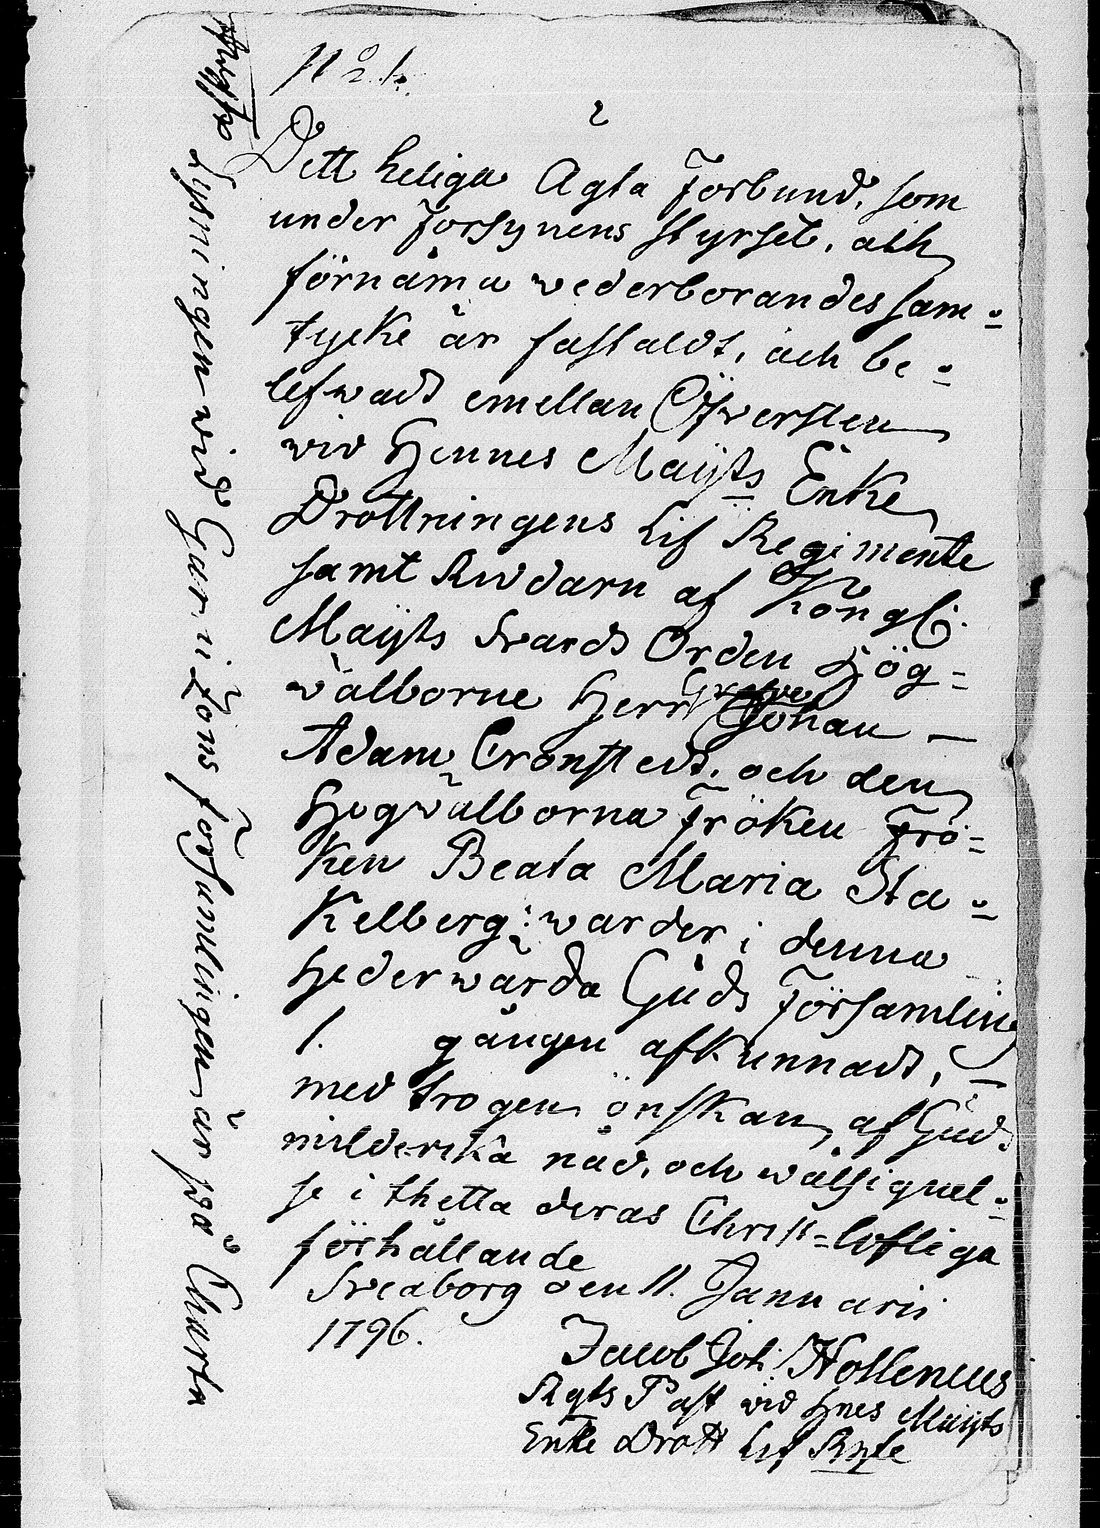 No 1.
2
Dett heliga Ägta Förbund, som
under Försynens styrsel, ath
förnäma wederborandes sam=
tycke är fastäldt, åch be=
lefwadt emellan Öfwersten
vid Hennes Maijts Enke
Drottningens Lif Regimente
samt Riddarn af Kongl.
Maijts Svärds Orden Hög=
wälborne Herr Grefve Johan
Adam Cronstedt, och den
Högwälborna Fröken Frö=
ken Beata Maria Sta=
Kelberg: warder i denna
Hedervärda Guds Församling
1. gången afkunnadt,
med trogen önskan af Guds
milderika nåd, och wälsignel=
se i thetta deras Christ=lofliga
förhållande
Sveaborg den 11. Januarii
1796.
Jacob Joh
Rgts Past vid Hnes Maijts
Enke Drott Lif Rgte
Lysningen wid Garnizons församlingen är på Charta